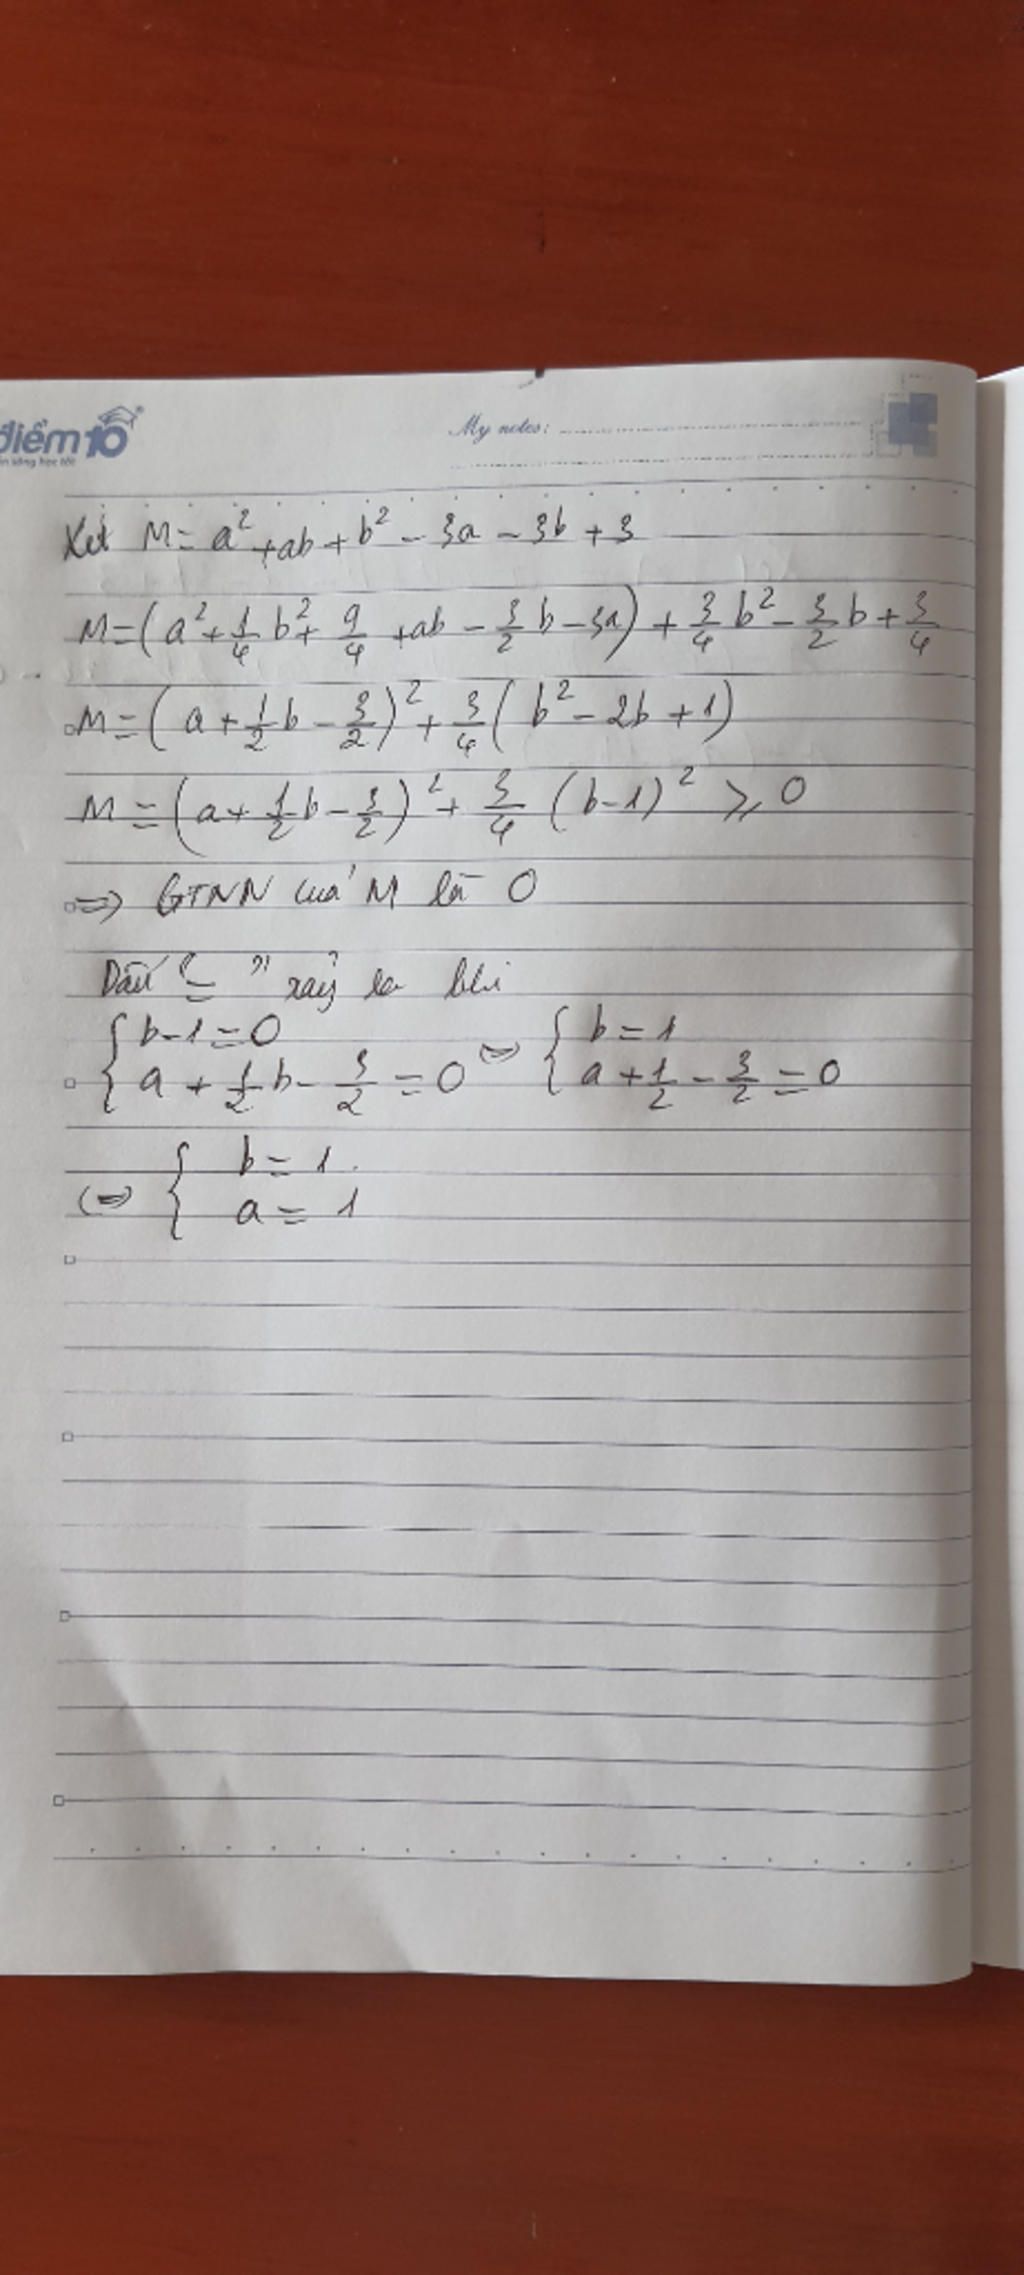 điểm10
My notes:
Xét M = a² + ab + b² - 3a - 3b + 3
M = (a² + 1/4 b² + 9/4 + ab - 3/2 b - 3a) + 3/4 b² - 3/2 b + 3/4
M = (a + 1/2 b - 3/2)² + 3/4 (b² - 2b + 1)
M = (a + 1/2 b - 3/2)² + 3/4 (b - 1)² ⩾ 0
=> GTNN của M là 0
Dấu "=" xảy ra khi
{ b - 1 = 0
{ a + 1/2 b - 3/2 = 0 <=> { b = 1
{ a + 1/2 - 3/2 = 0
<=> { b = 1
{ a = 1